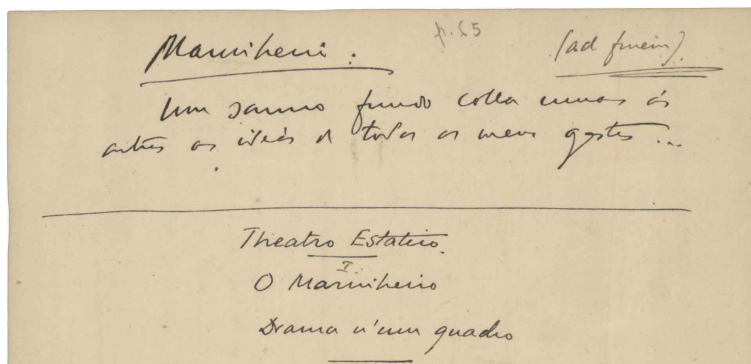 Marinheiro.
p. 65
(ad finem)
Um somno fundo colla umas ás
outras as idéas de todos os meus gestos...
Theatro Estatico.
I.
O Marinheiro
Drama n'um quadro